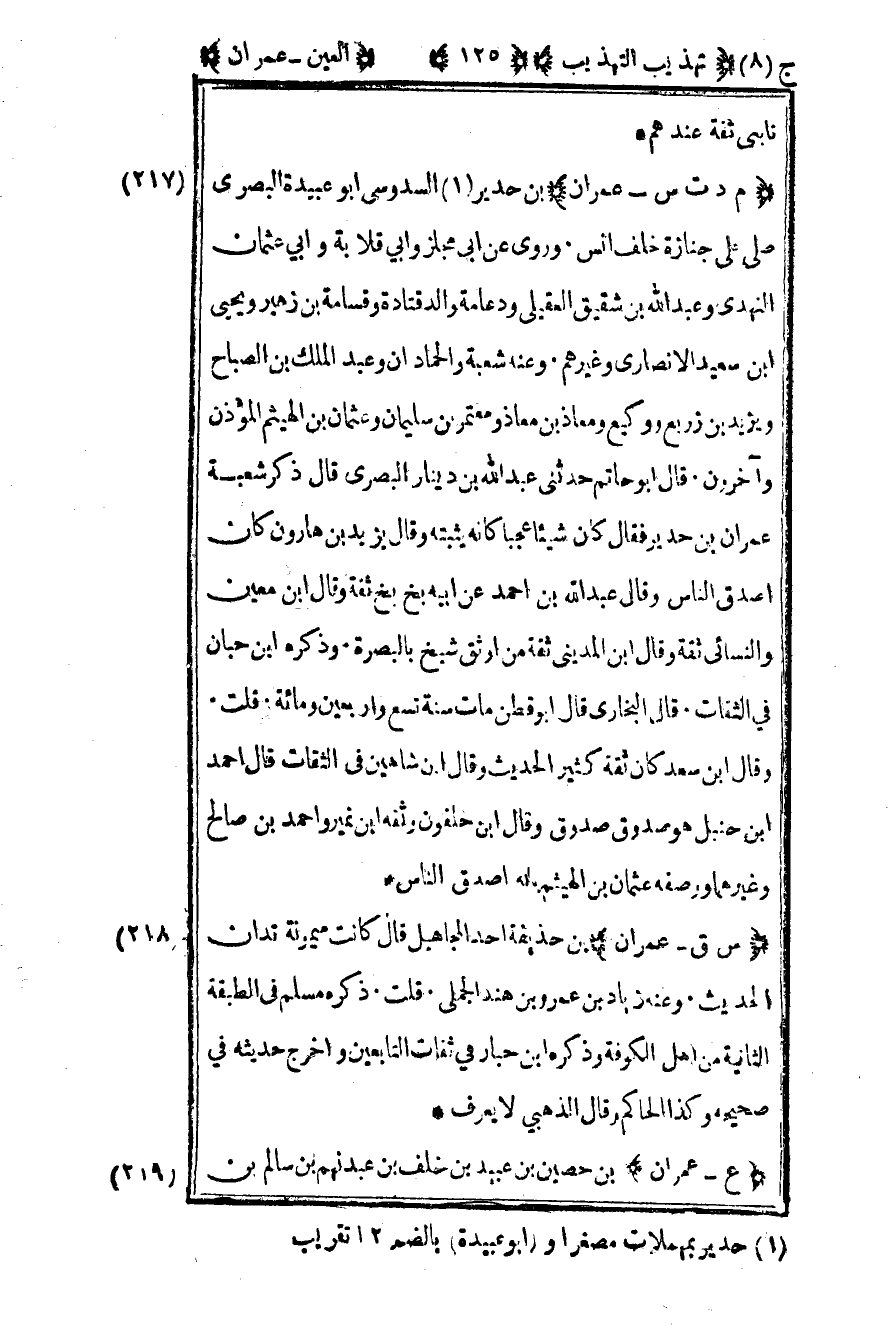 ج (٨) ﴿ تهذيب التهذيب ﴾ ﴿ ١٢٥ ﴾ ﴿ العين - عمران ﴾
تابعى ثقة عندهم *
﴿ م د ت س - عمران ﴾ بن حدير (١) السدوسى ابو عبيدة البصرى (٢١٧)
صلى على جنازة خلف انس · وروى عن ابى مجلز وابي قلابة و ابي عثمان
النهدى وعبدالله بن شقيق العقيلى ودعامة والد قتادة وقسامة بن زهير ويحيى
ابن سعيد الانصارى وغيرهم · وعنه شعبة والحمادان وعبد الملك بن الصباح
ويزيد بن زريع ووكيع ومعاذ بن معاذ ومعتمر بن سليمان وعثمان بن الهيثم المؤذن
وآخرون · قال ابو حاتم حدثنى عبدالله بن دينار البصرى قال ذكر شعبة
عمران بن حدير فقال كان شيئا عجبا كانه يثبته وقال يزيد بن هارون كان
اصدق الناس وقال عبدالله بن احمد عن ابيه بخ بخ ثقة وقال ابن معين
والنسائى ثقة وقال ابن المدينى ثقة من اوثق شيخ بالبصرة · وذكره ابن حبان
في الثقات · قال البخارى قال ابو قطن مات سنة تسع واربعين ومائة · قلت ·
وقال ابن سعد كان ثقة كثير الحديث وقال ابن شاهين فى الثقات قال احمد
ابن حنبل هو صدوق صدوق وقال ابن خلفون وثقه ابن نمير واحمد بن صالح
وغيرهما ووصفه عثمان بن الهيثم بانه اصدق الناس *
﴿ س ق - عمران ﴾ بن حذيفة احد المجاهيل قال كانت ميمونة تدان (٢١٨)
الحديث · وعنه زياد بن عمرو بن هند الجملى · قلت · ذكره مسلم فى الطبقة
الثانية من اهل الكوفة وذكره ابن حبان في ثقات التابعين واخرج حديثه في
صحيحه وكذا الحاكم وقال الذهبي لا يعرف *
﴿ ع - عمران ﴾ بن حصين بن عبيد بن خلف بن عبد نهم بن سالم بن (٢١٩)
(١) حدير بمهملات مصغرا و (ابو عبيدة) بالضم ١٢ تقريب